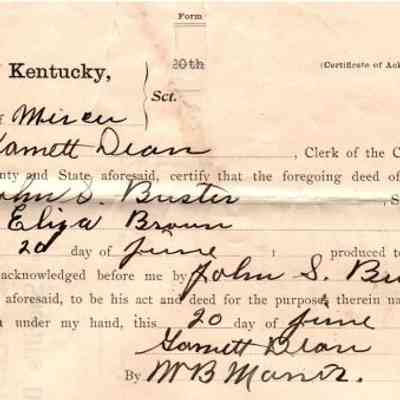 Form
20th
(Certificate of Ack
Kentucky,
Sct.
f Mercer
Garnett Dean, Clerk of the C
unty and State aforesaid, certify that the foregoing deed of
ohn S. Buster, S
Eliza Brown
20 day of June produced to
acknowledged before me by John S. Bu
aforesaid, to be his act and deed for the purposes therein na
under my hand, this 20 day of June
Garnett Dean
By W B